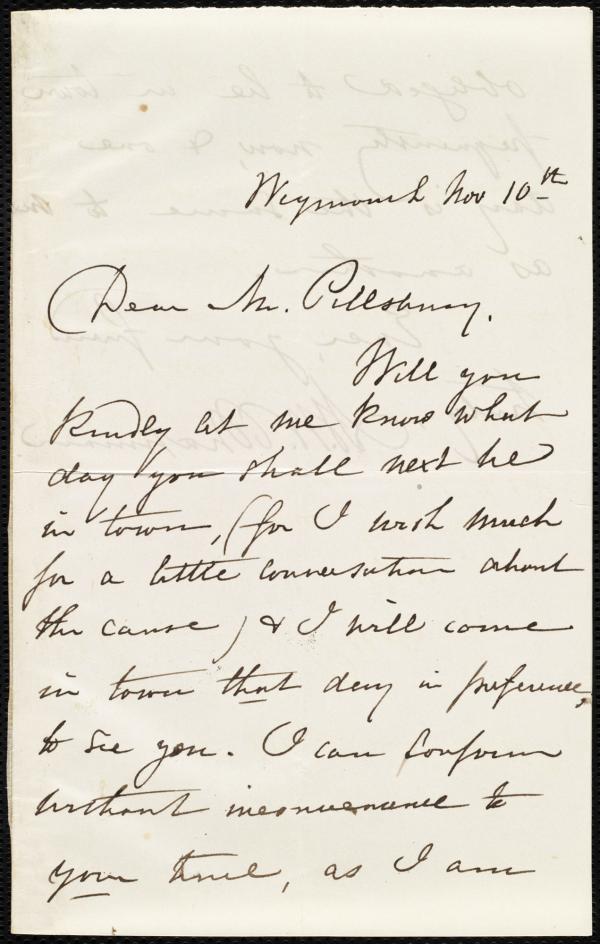 Weymouth Nov 10th
Dear Mr. Pillsbury,
Will you
kindly let me know what
day you shall next be
in town, (for I wish much
for a little conversation about
the cause) & I will come
in town that day in preference,
to see you. I can conform
without inconvenience to
your time, as I am